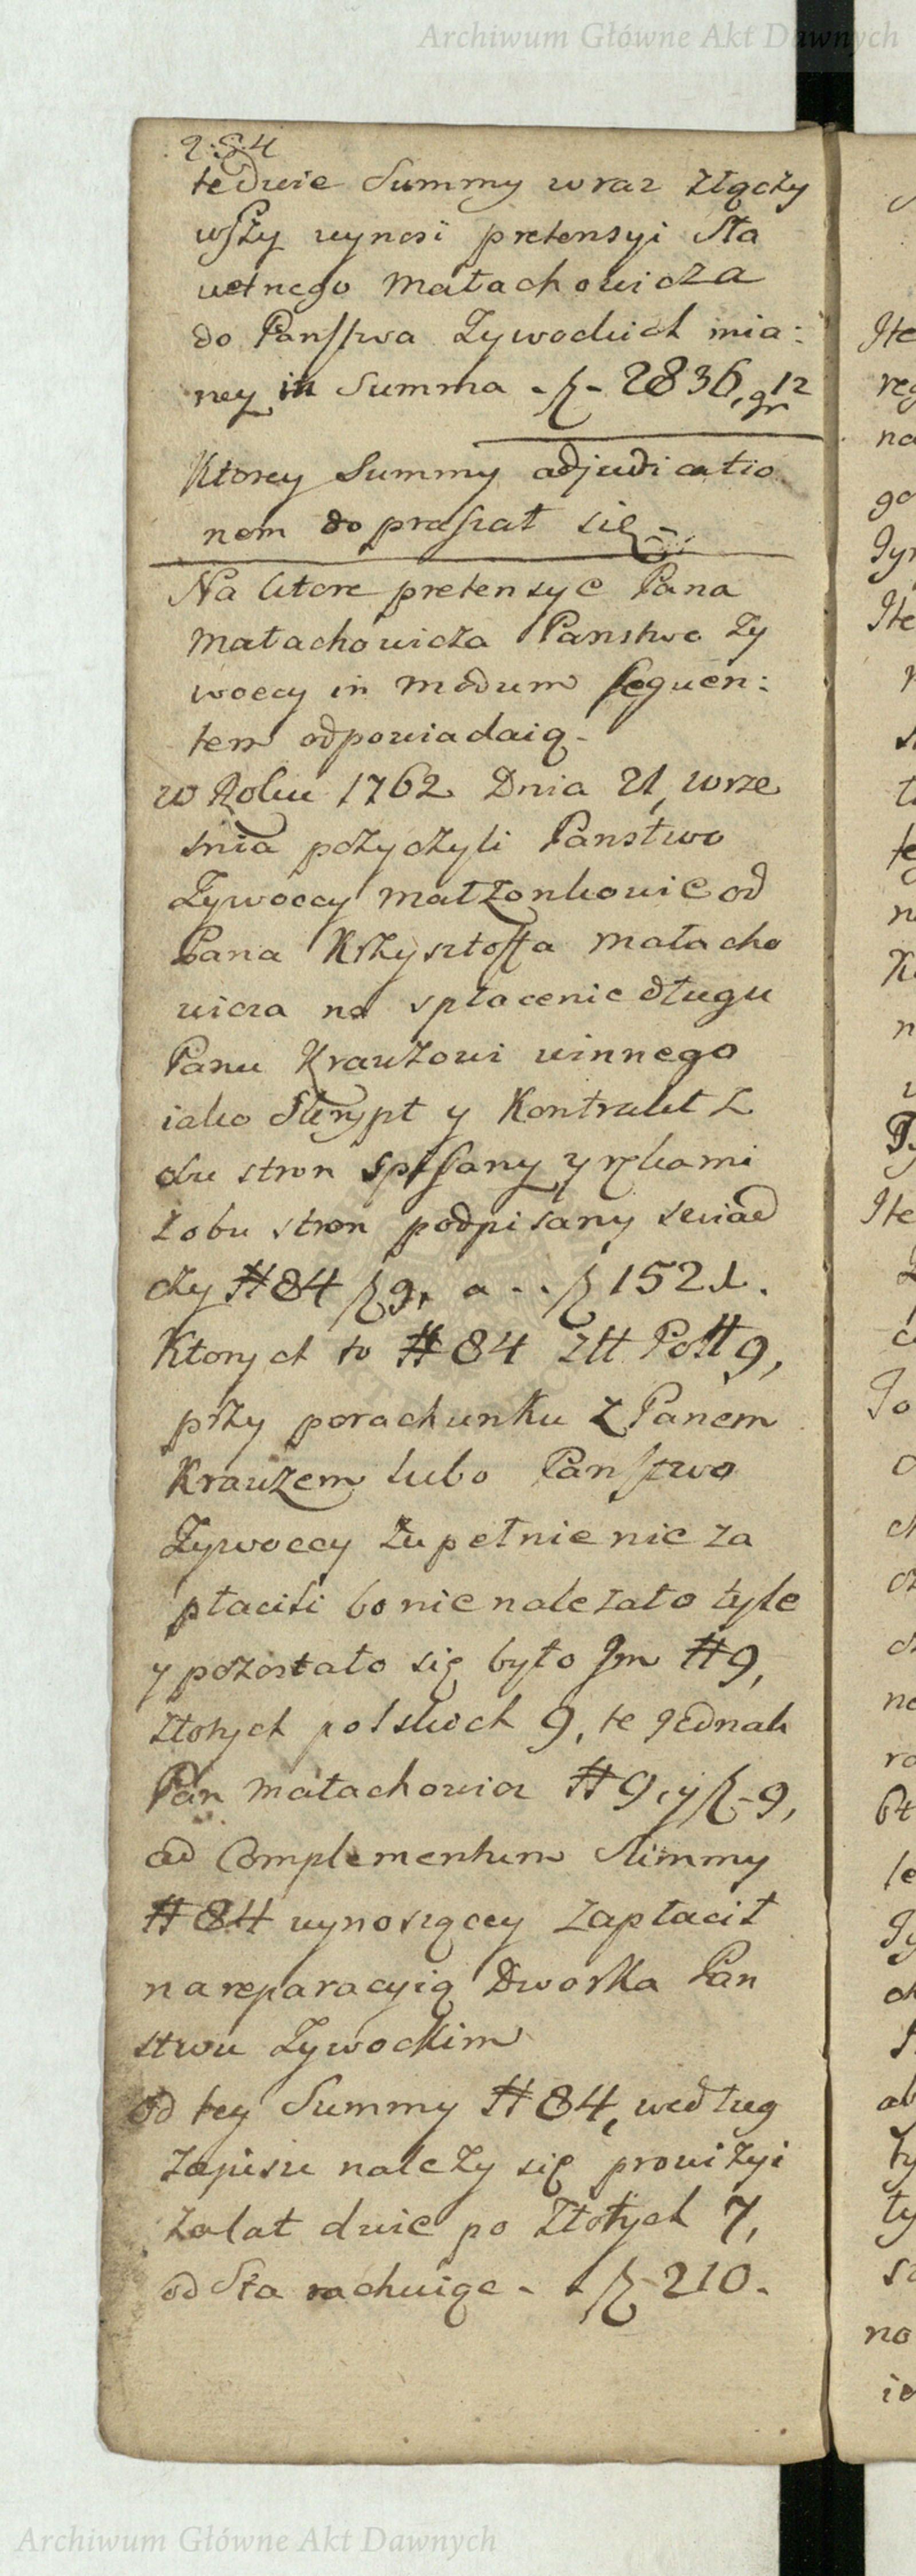 Archiwum Główne Akt Dawnych
284
te dwie Summy wraz złączy
wszy wynosi pretensyi Sła
wetnego Małachowicza
do Panstwa Zywockich mia:
ney in Summa - f - 2836, gr 12
Ktorey Summy adjudicatio
nem dopraszał się
Na ktore pretensye Pana
Małachowicza Panstwo Zy
woccy in modum sequen:
tem odpowiadaią -
w Roku 1762 Dnia 21, wrze
snia pozyczyli Panstwo
Zywoccy małzonkowie od
Pana Krzysztoffa Małacho
wicza na spłacenie długu
Panu Krauzowi winnego
iako Skrypt y Kontrakt z
obu stron spisany y rękami
z obu stron podpisany swiad
czy # 84 f 9, a - . f 1521.
Ktorych to # 84 Złł Poll 9,
przy porachunku z Panem
Krauzem lubo Panstwo
Zywoccy zupełnie nie za
płacili bo nie nalezało tyle
y pozostało się było Jm # 9,
złotych polskich 9, te jednak
Pan Małachowicz # 9, y f - 9,
ad Complementum Summy
# 84 wynosząccy zapłacił
na reparacyią Dworka Pan
stwu Zywockim
od tey Summy # 84, według
zapisu nalezy się prowizyi
za lat dwie po Złotych 7,
od Sta rachuiąc - - f - 210.
Archiwum Główne Akt Dawnych